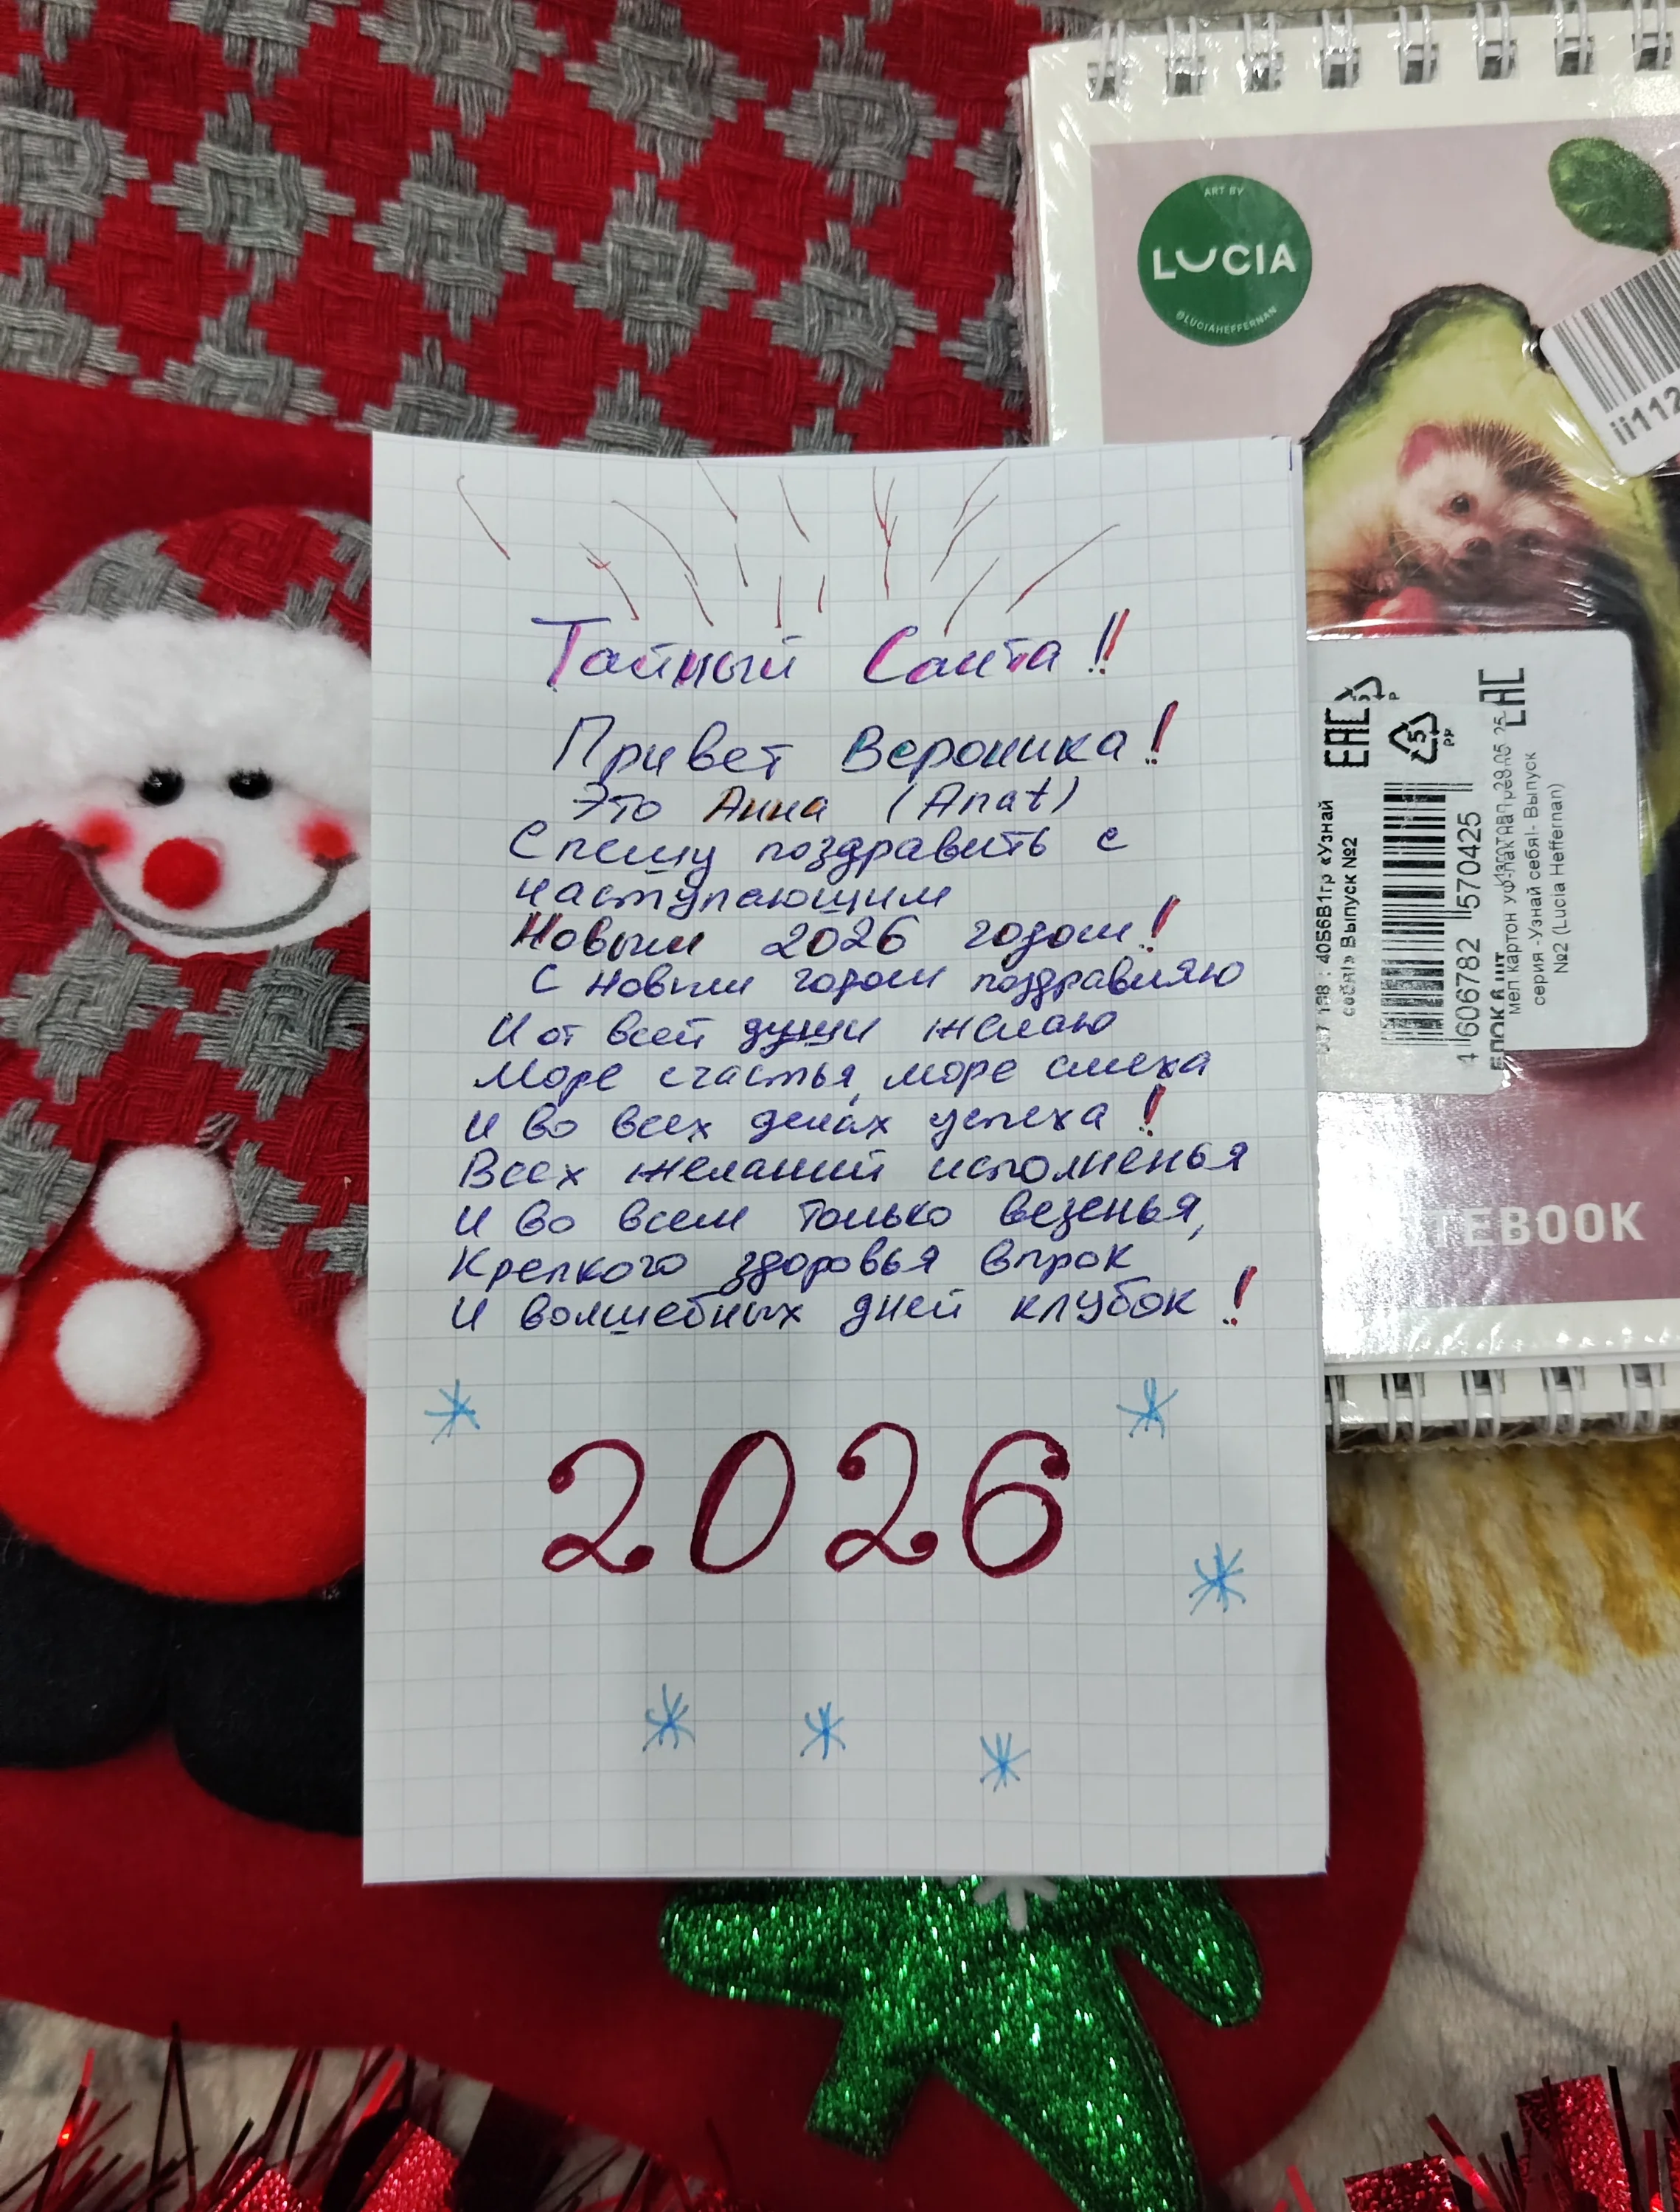 Тайный Санта!!
Привет Вероника!
Это Анна (Anat)
Спешу поздравить с
наступающим
Новым 2026 годом!
С Новым годом поздравляю
И от всей души желаю
Море счастья, море смеха
И во всех делах успеха!
Всех желаний исполненья
И во всем только везенья,
Крепкого здоровья впрок
И волшебных дней клубок!
2026
ART BY
LUCIA
@LUCIAHEFFERNAN
ii112
EAC
5
PP
EAC
40S6B1гр «Узнай
себя!» Выпуск №2
4 606782 570425
мел картон уф-лак
серия -Узнай себя!- Выпуск
№2 (Lucia Heffernan)
TEBOOK